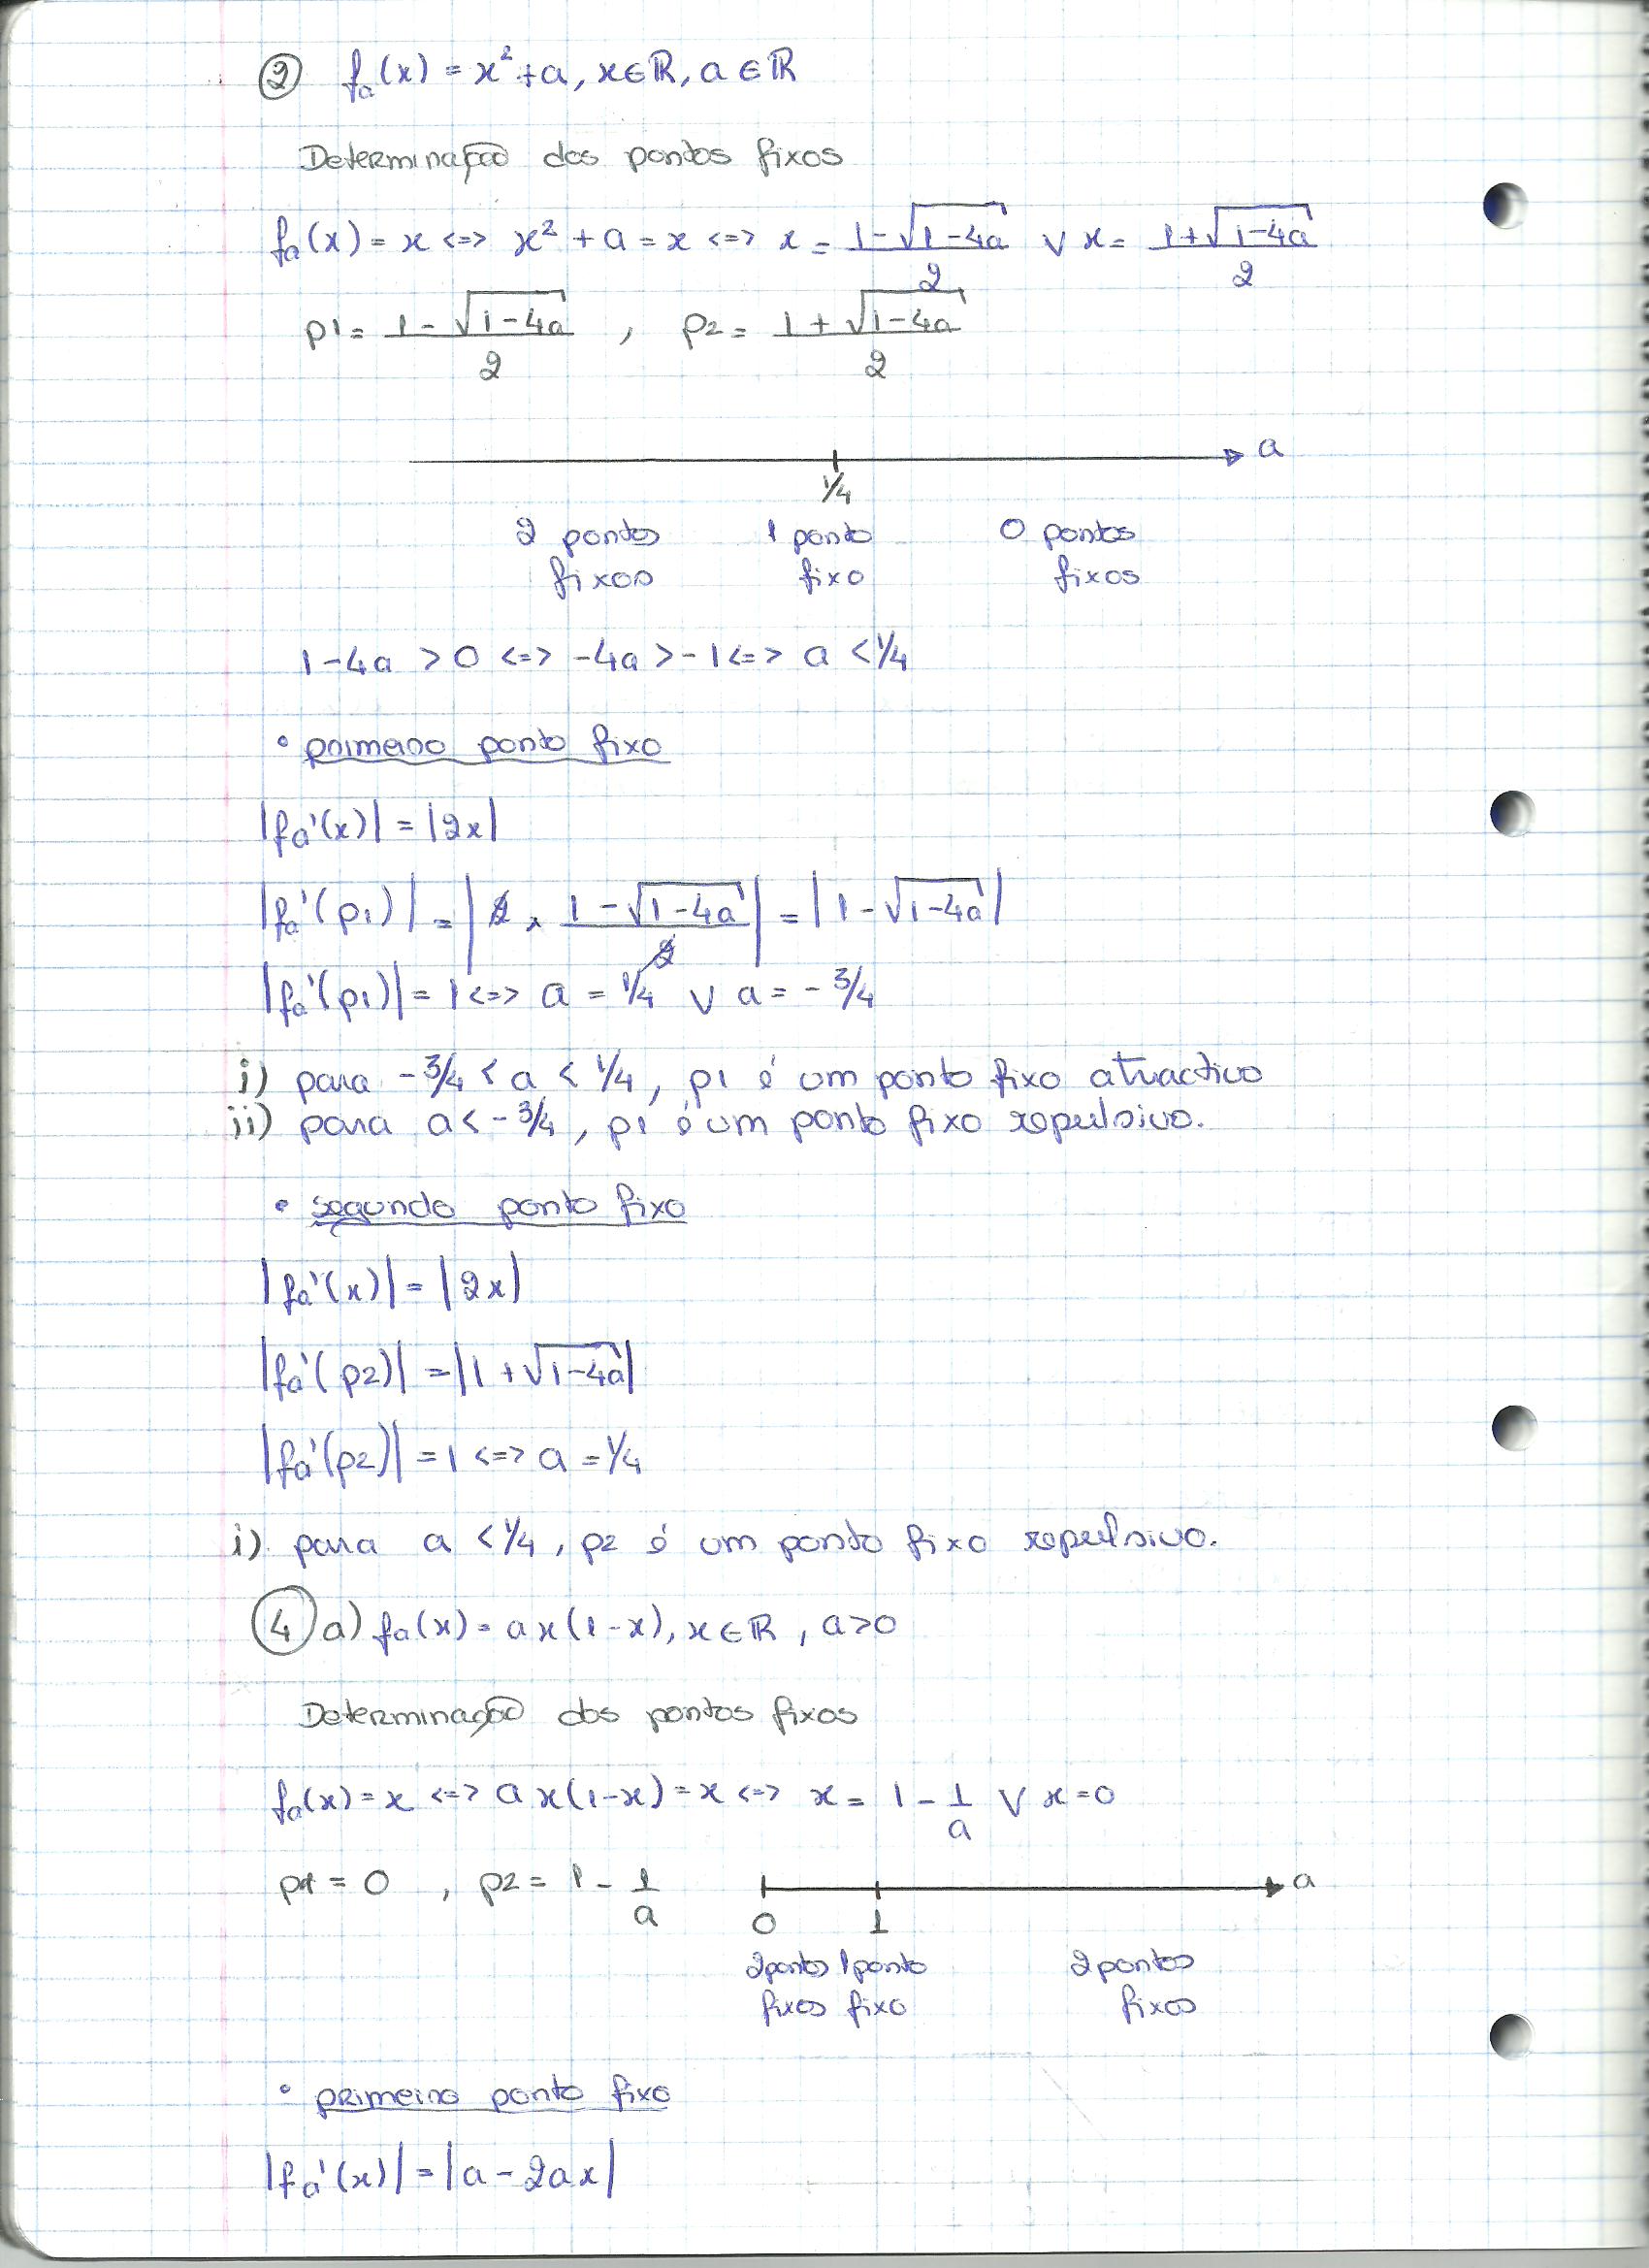 ② fa(x) = x² + a, x ∈ ℝ, a ∈ ℝ
Determinação dos pontos fixos
fa(x) = x <=> x² + a = x <=> x = (1 - √(1-4a))/2 ∨ x = (1 + √(1-4a))/2
p1 = (1 - √(1-4a))/2 , p2 = (1 + √(1-4a))/2
a
1/4
2 pontos fixos 1 ponto fixo 0 pontos fixos
1-4a > 0 <=> -4a > -1 <=> a < 1/4
• primeiro ponto fixo
|fa'(x)| = |2x|
|fa'(p1)| = |2 × (1 - √(1-4a))/2| = |1 - √(1-4a)|
|fa'(p1)| = 1 <=> a = 1/4 ∨ a = - 3/4
i) para - 3/4 < a < 1/4, p1 é um ponto fixo atractivo
ii) para a < - 3/4, p1 é um ponto fixo repulsivo.
• segundo ponto fixo
|fa'(x)| = |2x|
|fa'(p2)| = |1 + √(1-4a)|
|fa'(p2)| = 1 <=> a = 1/4
i) para a < 1/4, p2 é um ponto fixo repulsivo.
④ a) fa(x) = ax(1-x), x ∈ ℝ, a > 0
Determinação dos pontos fixos
fa(x) = x <=> ax(1-x) = x <=> x = 1 - 1/a ∨ x = 0
p1 = 0 , p2 = 1 - 1/a
a
0 1
2 pontos fixos 1 ponto fixo 2 pontos fixos
• primeiro ponto fixo
|fa'(x)| = |a - 2ax|